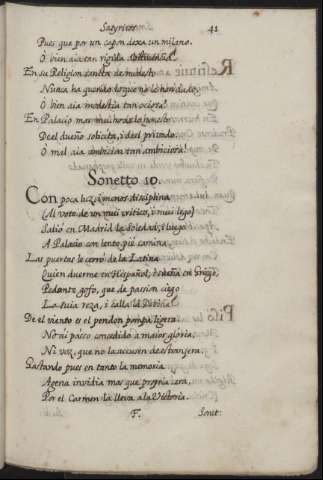 Satyricos. 41
Pues que por un capon dexa un milano.
O bien aia tan rigida
En su Religion
Nunca ha querido lo que no le han dado;
O bien aia modestia tan ociosa!
En Palacio mas mucho de lo honesto
De el dueño solicita, i de el privado,
O mal aia ambicion tan ambiciosa!
Sonetto 10.
Con poca luz, i menos disciplina
(Al voto de un mui critico, i mui lego)
Salió en Madrid la Soledad, i luego
A Palacio con lento pié camina.
Las puertas le cerró de la Latina
Quien duerme en Hespañol, i sueña en Griego,
Pedante gofo, que de passion ciego
La suia reza, i calla la Divina.
De el viento es el pendon pompa ligera
No ai passo concedido a maior gloria,
Ni voz, que no la accusen de estranjera.
Gastando pues en tanto la memoria
Agena invidia mas que propria cera,
Por el Carmen la lleva a la Victoria.
F. Sonet: